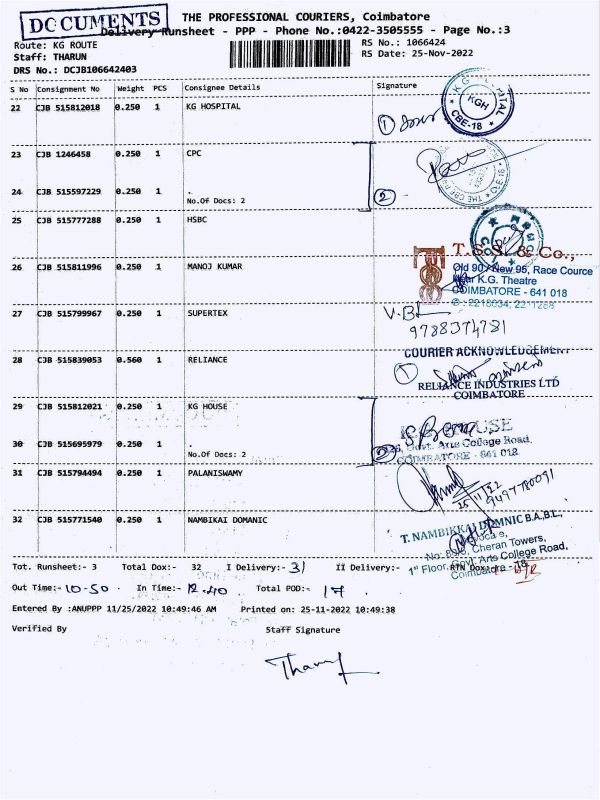 DOCUMENTS
THE PROFESSIONAL COURIERS, Coimbatore
Delivery Runsheet - PPP - Phone No.:0422-3505555 - Page No.:3
Route: KG ROUTE
Staff: THARUN
DRS No.: DCJB106642403
RS No.: 1066424
RS Date: 25-Nov-2022
S No Consignment No Weight PCS Consignee Details Signature
22 CJB 515812018 0.250 1 KG HOSPITAL
KGH
CBE-18
1
23 CJB 1246458 0.250 1 CPC
24 CJB 515597229 0.250 1 .
No.Of Docs: 2
2
25 CJB 515777288 0.250 1 HSBC
T.S.S. & Co.,
26 CJB 515811996 0.250 1 MANOJ KUMAR
Old 90/New 95, Race Cource
Near K.G. Theatre
COIMBATORE - 641 018
27 CJB 515799967 0.250 1 SUPERTEX
V.BL
9788374781
COURIER ACKNOWLEDGEMENT
28 CJB 515839053 0.560 1 RELIANCE
1
RELIANCE INDUSTRIES LTD
COIMBATORE
29 CJB 515812021 0.250 1 KG HOUSE
Govt. Arts College Road,
COIMBATORE - 641 018
30 CJB 515695979 0.250 1 .
No.Of Docs: 2
2
31 CJB 515794494 0.250 1 PALANISWAMY
25/11/22
9497780091
32 CJB 515771540 0.250 1 NAMBIKAI DOMANIC
T. NAMBIKKAI DOMNIC B.A.,B.L.,
Cheran Towers,
1st Floor, Govt. Arts College Road,
Coimbatore - 18.
Tot. Runsheet:- 3 Total Dox:- 32 I Delivery:- 31 II Delivery:- RTN Dox:-
Out Time:- 10.50 In Time:- 12.40 Total POD:- 17
Entered By :ANUPPP 11/25/2022 10:49:46 AM Printed on: 25-11-2022 10:49:38
Verified By Staff Signature
Tharun